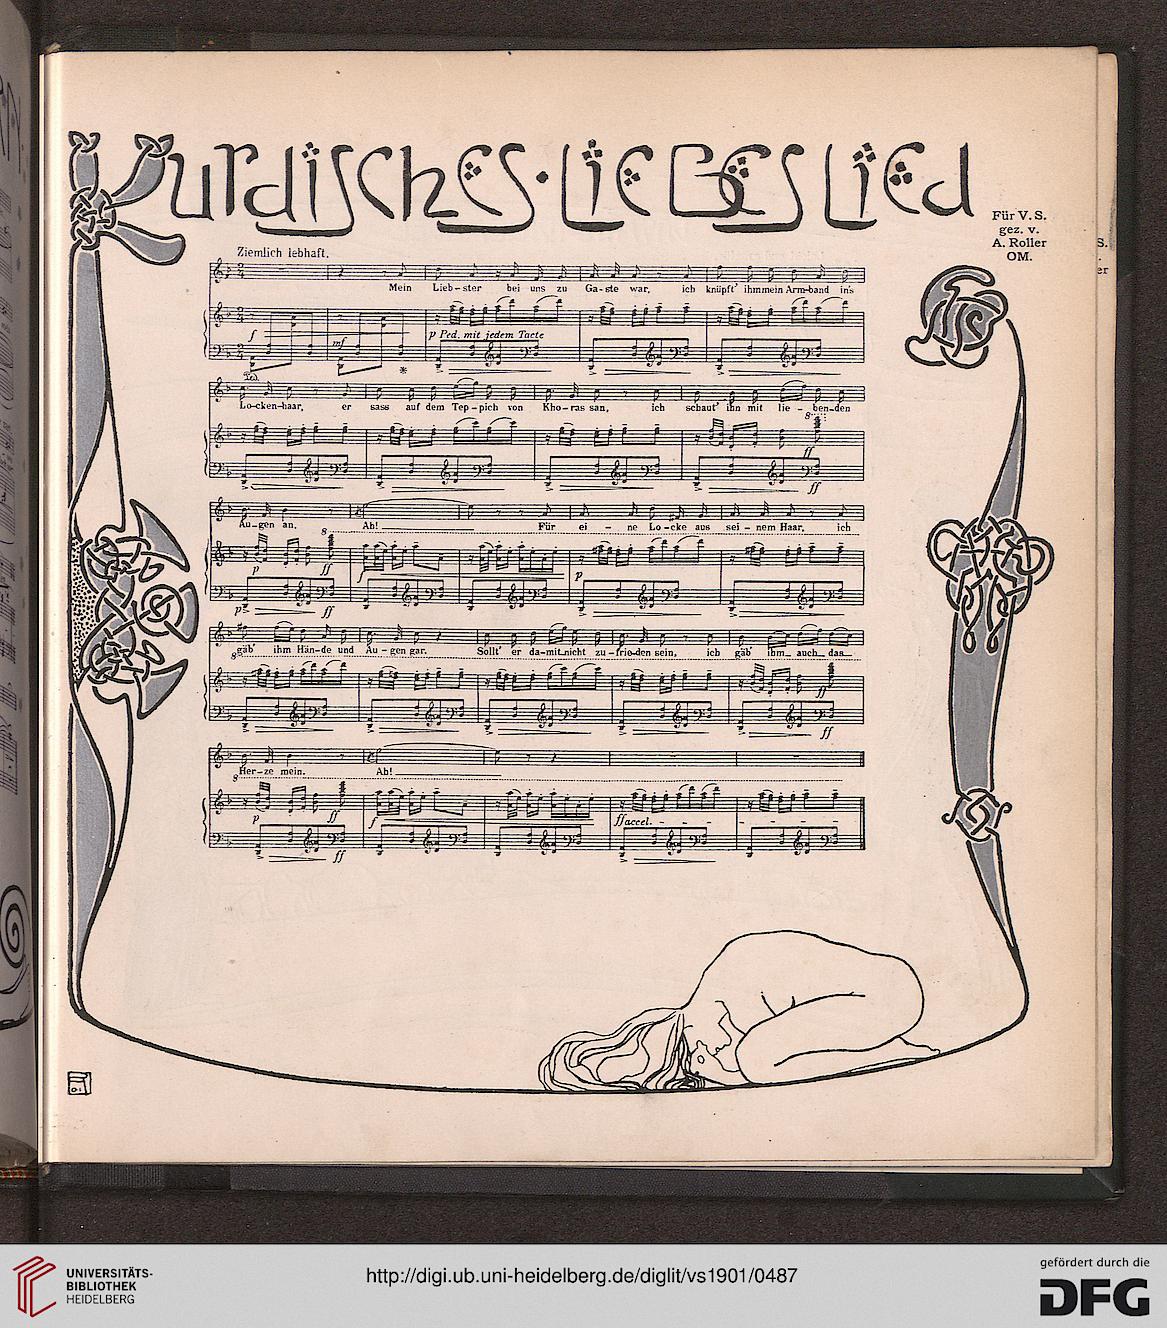 Kurdisches · Liebeslied
Für V. S.
gez. v.
A. Roller
OM.
Ziemlich lebhaft.
Mein Lieb-ster bei uns zu Ga-ste war, ich knüpft' ihm mein Arm-band in's
f mf p Ped. mit jedem Tacte
Ped. *
Lo-cken-haar, er sass auf dem Tep-pich von Kho-ras san, ich schaut' ihn mit lie-ben-den
8
ff
ff
Au-gen an. Ah! Für ei-ne Lo-cke aus sei-nem Haar, ich
8
p ff f p
p ff
gäb' ihm Hän-de und Au-gen gar. Sollt' er da-mit nicht zu-frie-den sein, ich gäb' ihm auch das
8
ff
ff
Her-ze mein. Ah!
8
p ff f ff accel.
ff
UNIVERSITÄTS-
BIBLIOTHEK
HEIDELBERG
http://digi.ub.uni-heidelberg.de/diglit/vs1901/0487
gefördert durch die
DFG